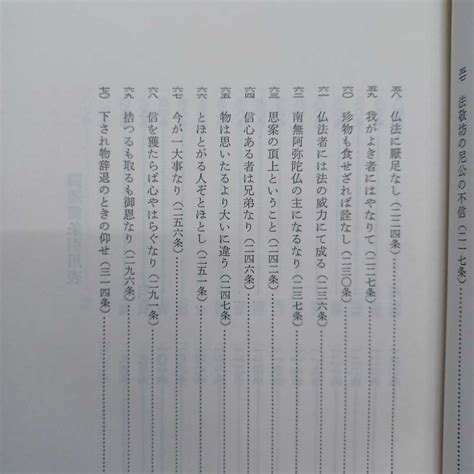 五七 法敬坊の尼公の不信(二一七条)
五八 仏法に厭足なし(二二四条)
五九 我がよき者にはやなりて(二二七条)
六〇 珍物も食せざれば詮なし(二三〇条)
六一 仏法者には法の威力にて成る(二三六条)
六二 南無阿弥陀仏の主になるなり(二三七条)
六三 思案の頂上ということ(二四二条)
六四 信心ある者は兄弟なり(二四六条)
六五 物は思いたるより大いに違う(二四七条)
六六 とほとがる人ぞとほとし(二五一条)
六七 今が一大事なり(二五六条)
六八 信を獲たらば心やはらぐなり(二九一条)
六九 捨つるも取るも御恩なり(二九六条)
七〇 下され物辞退のときの仰せ(三一四条)